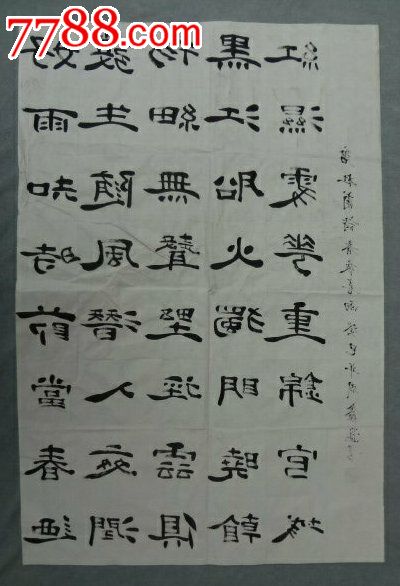 7788.com
好雨知時節當春迺
發生隨風潛入夜潤
物細無聲野徑雲俱
黑江船火獨明曉看
紅濕處華重錦官城